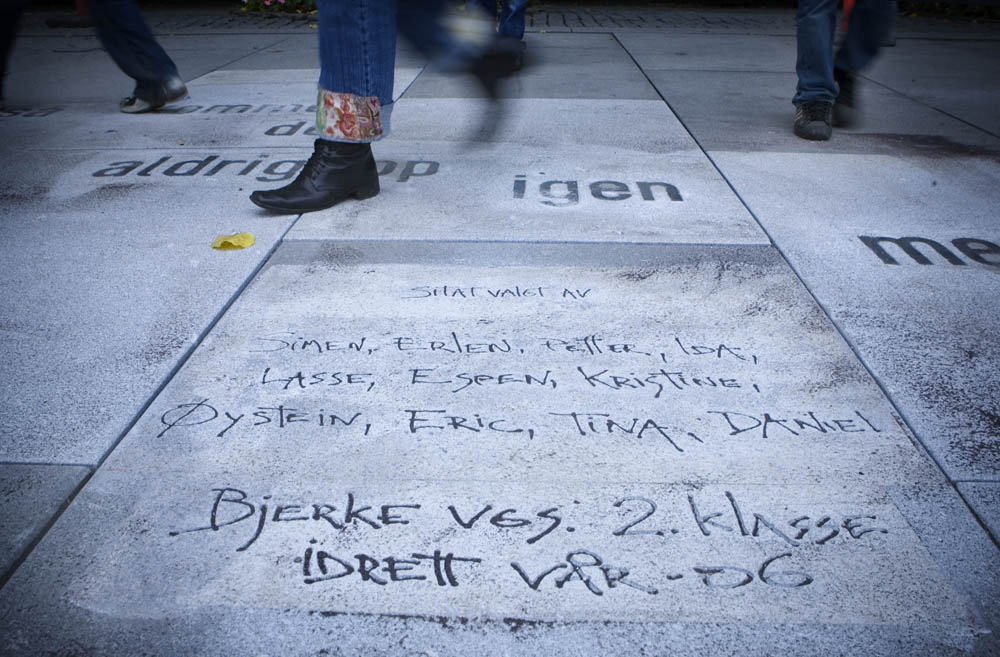 aldrig
op
igen
me
SITAT VALGT AV
SIMEN, ERLEN, PETTER, IDA,
LASSE, ESPEN, KRISTINE,
ØYSTEIN, ERIC, TINA, DANIEL
BJERKE VGS. 2. KLASSE.
IDRETT VÅR - 06